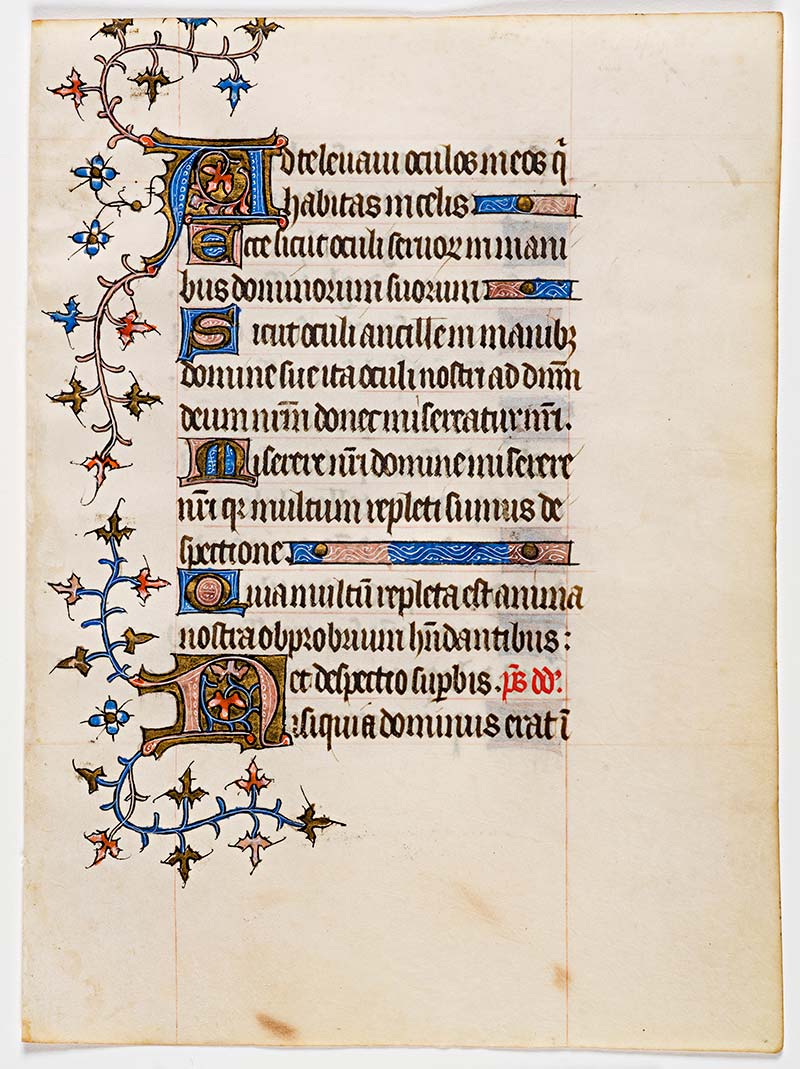 Ad te leuaui oculos meos qͥ
habitas in celis
Ecce sicut oculi seruoꝝ in mani
bus dominorum suorum
Sicut oculi ancille in manibꝫ
domine sue ita oculi nostri ad dn̄m
deum nr̄m donec misereatur nr̄i.
Miserere nr̄i domine miserere
nr̄i qꝛ multum repleti sumus de
spectione.
Quia multū repleta est anima
nostra obprobrium hn̄dantibus:
et despectio suꝑbis. p̄s dd̕:
Nisi quia dominus erat ī